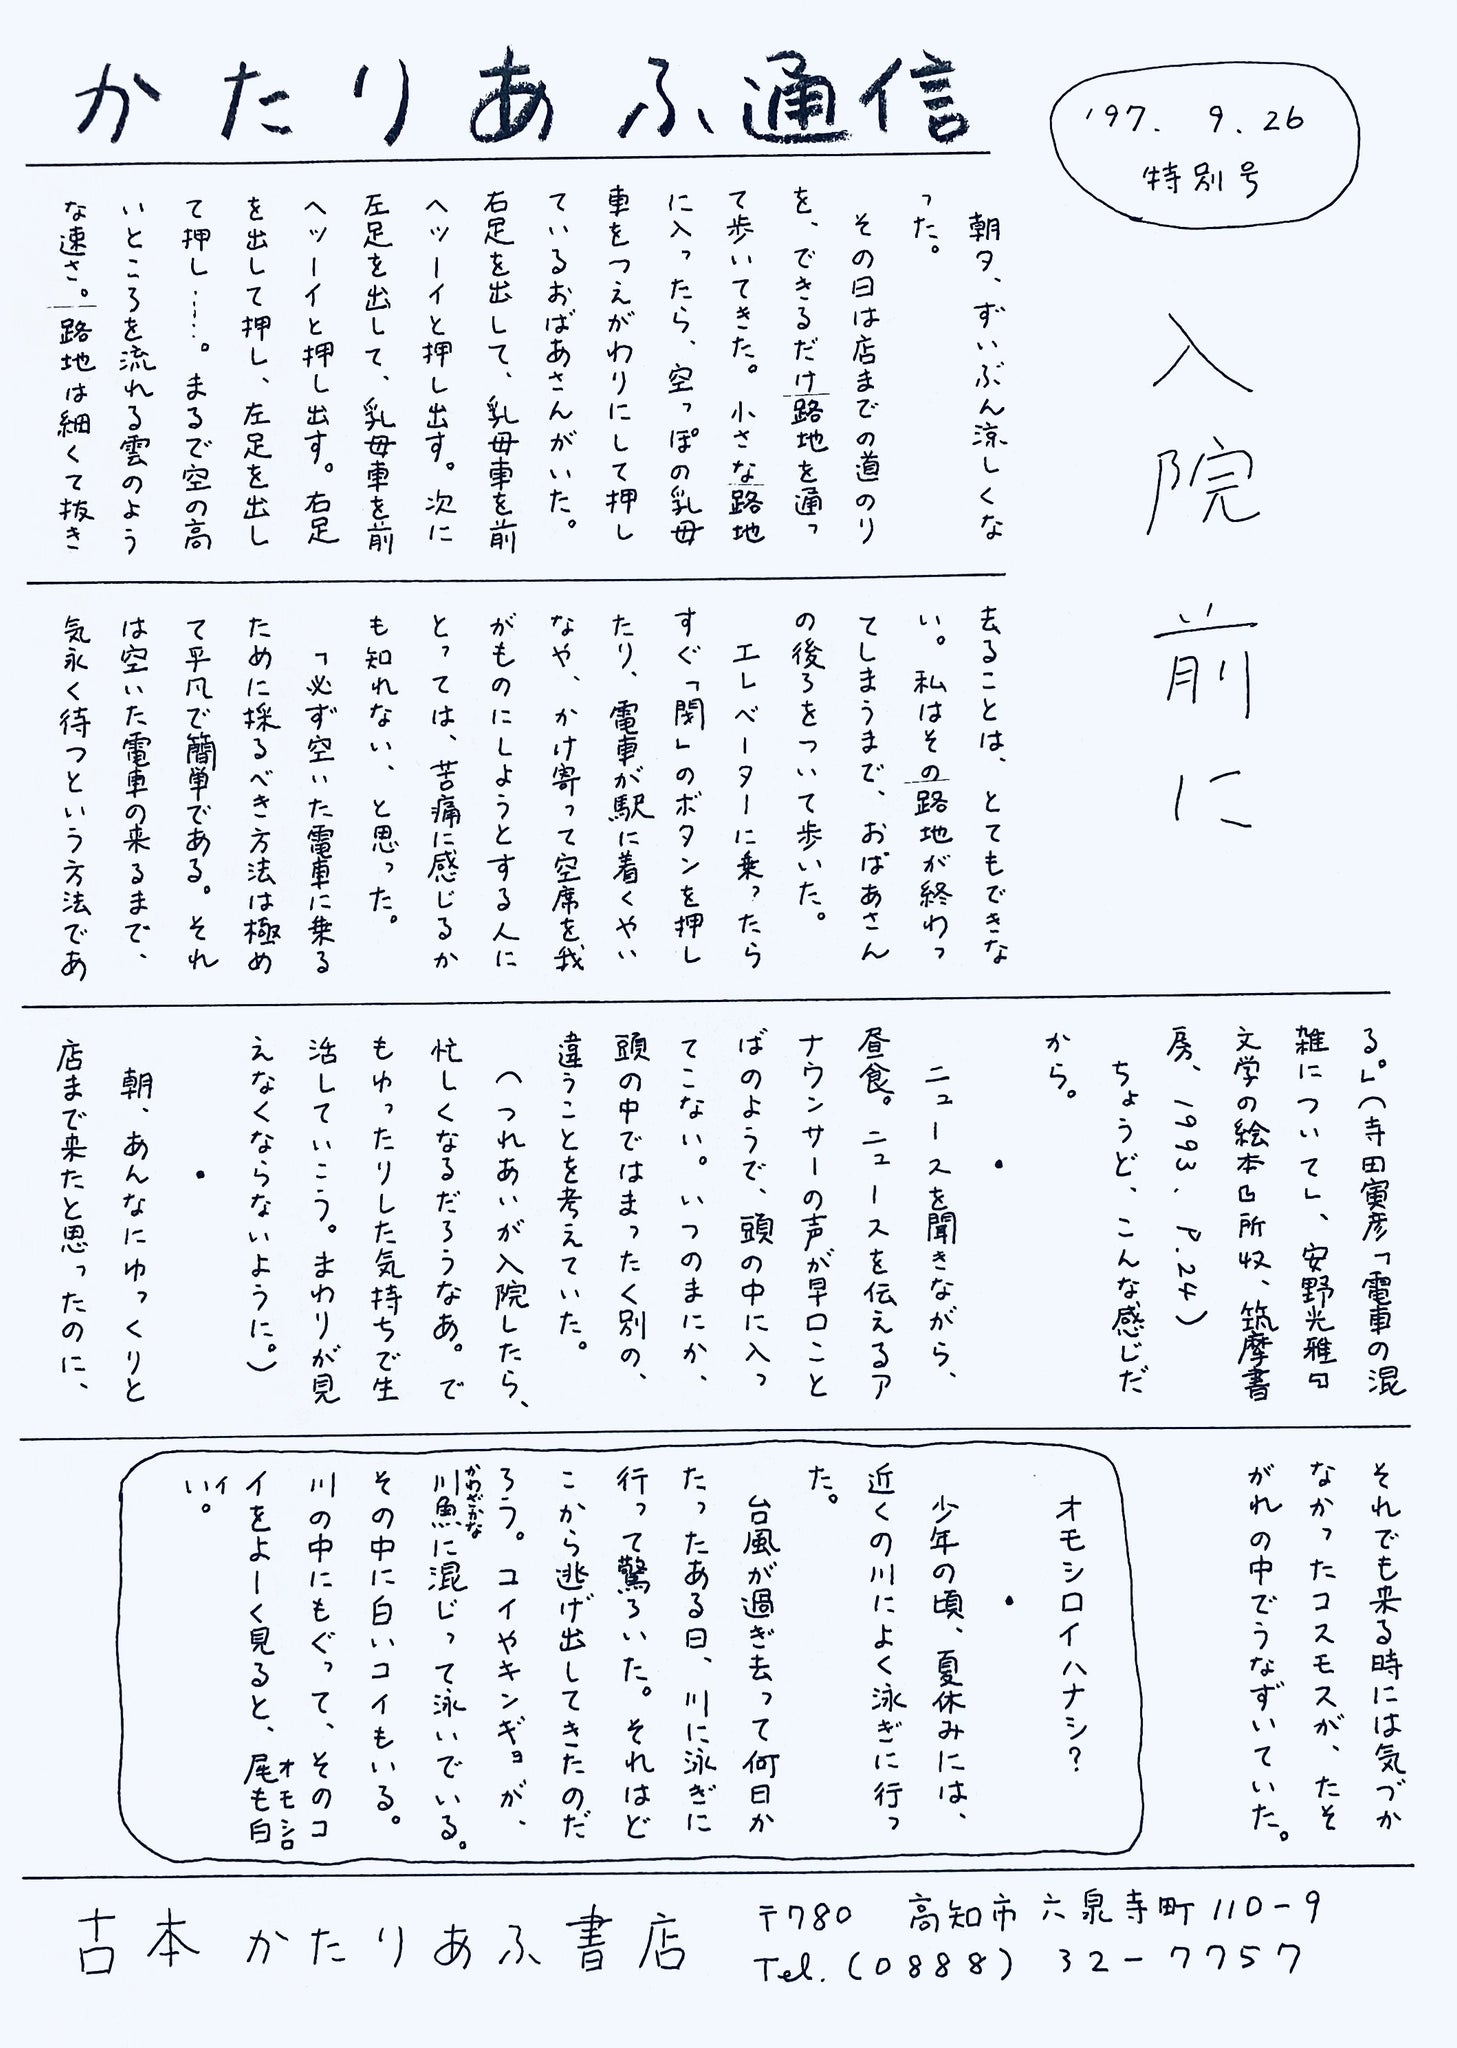 かたりあふ通信
'97. 9. 26
特別号
入院前に
朝夕、ずいぶん涼しくな
った。
その日は店までの道のり
を、できるだけ路地を通っ
て歩いてきた。小さな路地
に入ったら、空っぽの乳母
車をつえがわりにして押し
ているおばあさんがいた。
右足を出して、乳母車を前
へッーイと押し出す。次に
左足を出して、乳母車を前
へッーイと押し出す。右足
を出して押し、左足を出し
て押し……。まるで空の高
いところを流れる雲のよう
な速さ。路地は細くて抜き
去ることは、とてもできな
い。私はその路地が終わっ
てしまうまで、おばあさん
の後ろをついて歩いた。
エレベーターに乗ったら
すぐ「閉」のボタンを押し
たり、電車が駅に着くやい
なや、かけ寄って空席を我
がものにしようとする人に
とっては、苦痛に感じるか
も知れない、と思った。
「必ず空いた電車に乗る
ために採るべき方法は極め
て平凡で簡単である。それ
は空いた電車の来るまで、
気永く待つという方法であ
る。」(寺田寅彦「電車の混
雑について」、安野光雅『
文学の絵本』所収、筑摩書
房、1993、P.24)
ちょうど、こんな感じだ
から。
・
ニュースを聞きながら、
昼食。ニュースを伝えるア
ナウンサーの声が早口こと
ばのようで、頭の中に入っ
てこない。いつのまにか、
頭の中ではまったく別の、
違うことを考えていた。
(つれあいが入院したら、
忙しくなるだろうなあ。で
もゆったりした気持ちで生
活していこう。まわりが見
えなくならないように。)
・
朝、あんなにゆっくりと
店まで来たと思ったのに、
それでも来る時には気づか
なかったコスモスが、たそ
がれの中でうなずいていた。
オモシロイハナシ?
・
少年の頃、夏休みには、
近くの川によく泳ぎに行っ
た。
台風が過ぎ去って何日か
たったある日、川に泳ぎに
行って驚ろいた。それはど
こから逃げ出してきたのだ
ろう。コイやキンギョが、
かわざかな
川魚に混じって泳いでいる。
その中に白いコイもいる。
川の中にもぐって、そのコ
イをよーく見ると、尾も白
オモシロ
イ
い。
古本 かたりあふ書店
〒780 高知市六泉寺町110-9
Tel. (0888) 32-7757